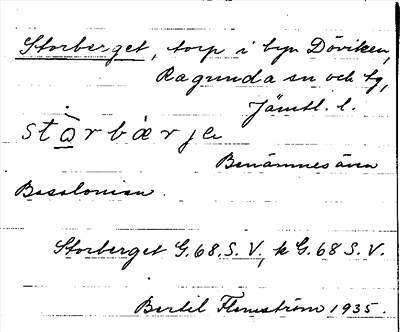 Storberget, torp i byn Döviken,
Ragunda sn och tg,
Jämtl. l.
stò̱rbærje
Benämnes även
Basalonien.
Storberget G.68.S.V., k G.68 S.V.
Bertil Flemström 1935.